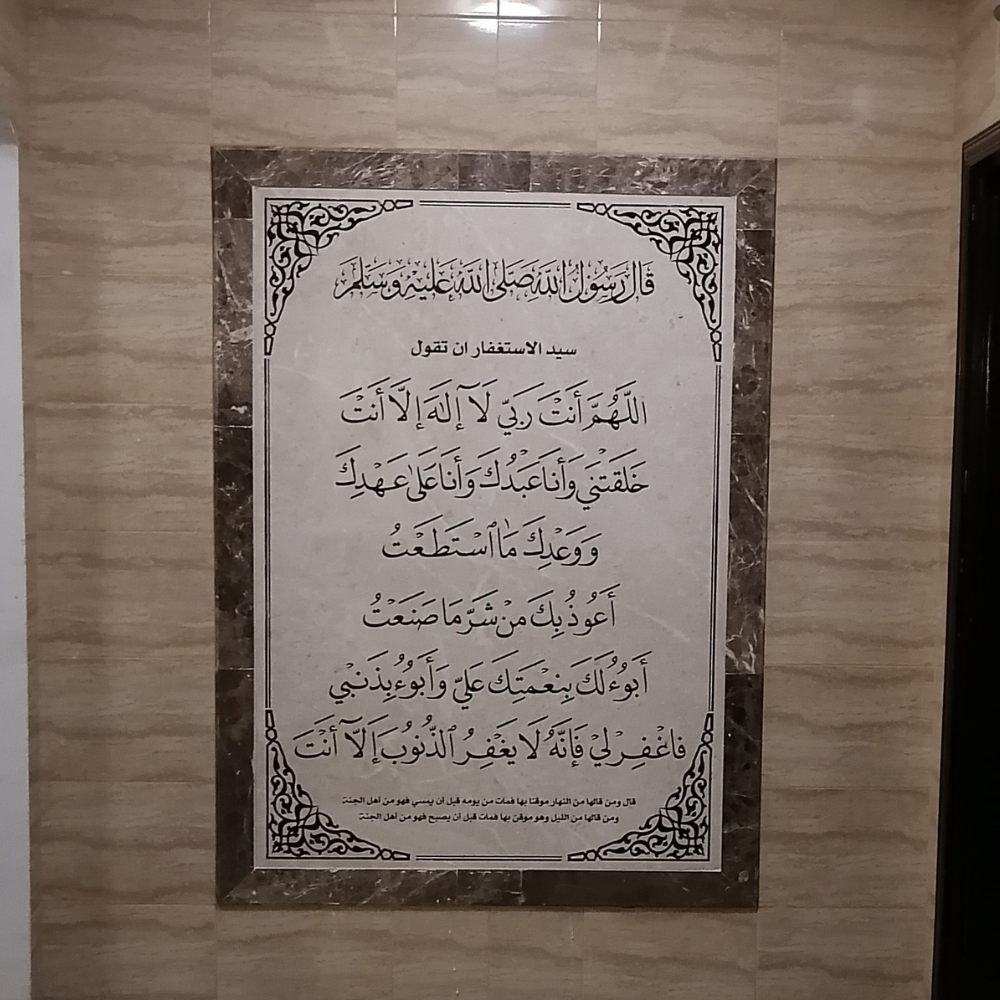 قَالَ رَسُولُ اللَّهِ صَلَّى اللَّهُ عَلَيْهِ وَسَلَّمَ
سيد الاستغفار ان تقول
اللَّهُمَّ أَنْتَ رَبِّي لَا إِلَٰهَ إِلَّا أَنْتَ
خَلَقْتَنِي وَأَنَا عَبْدُكَ وَأَنَا عَلَىٰ عَهْدِكَ
وَوَعْدِكَ مَا ٱسْتَطَعْتُ
أَعُوذُ بِكَ مِنْ شَرِّ مَا صَنَعْتُ
أَبُوءُ لَكَ بِنِعْمَتِكَ عَلَيَّ وَأَبُوءُ بِذَنْبِي
فَاغْفِرْ لِي فَإِنَّهُ لَا يَغْفِرُ ٱلذُّنُوبَ إِلَّا أَنْتَ
قال ومن قالها من النهار موقنا بها فمات من يومه قبل أن يمسي فهو من أهل الجنة
ومن قالها من الليل وهو موقن بها فمات قبل أن يصبح فهو من أهل الجنة